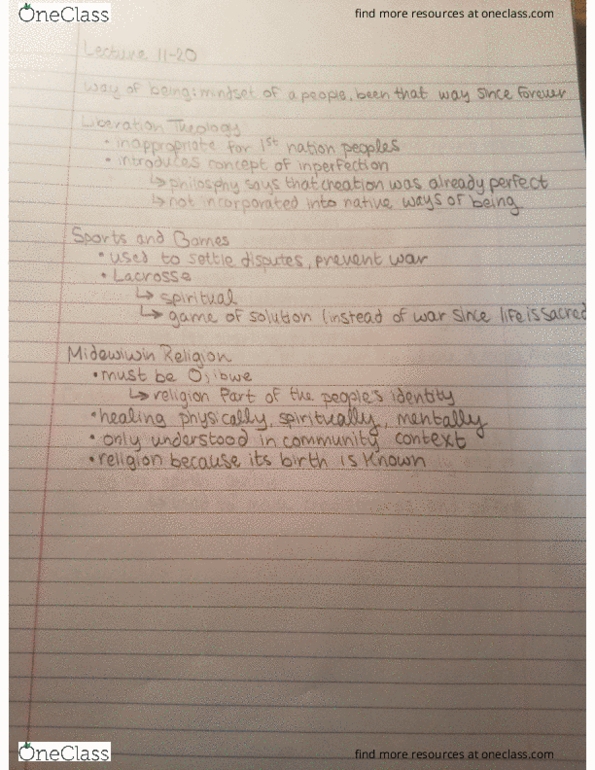 OneClass
find more resources at oneclass.com
Lecture 11-20
way of being: mindset of a people, been that way since forever
Liberation Theology
• inappropriate for 1st nation peoples
• introduces concept of inperfection
↳ philosphy says that creation was already perfect
↳ not incorporated into native ways of being
Sports and Games
• used to settle disputes, prevent war
• Lacrosse
↳ spiritual
↳ game of solution (instead of war since life is sacred
Midewiwin Religion
• must be Ojibwe
↳ religion part of the people's identity
• healing physically, spiritually, mentally
• only understood in community context
• religion because its birth is known
OneClass
find more resources at oneclass.com